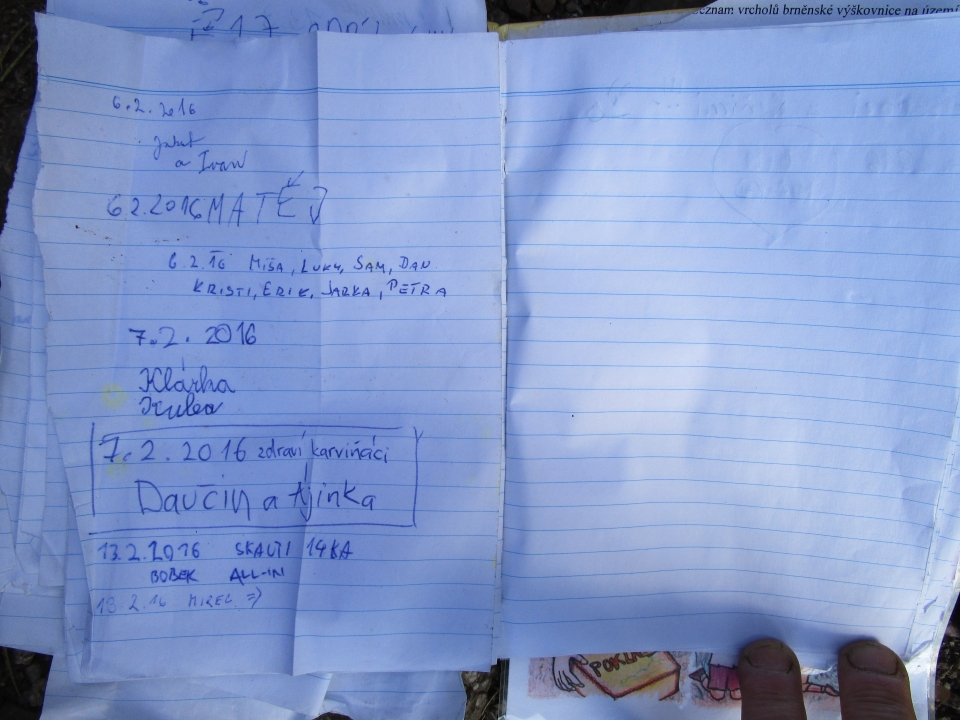 Seznam vrcholů brněnské výškovnice na území
6.2.2016
a Ivan
6.2.2016 MATĚJ
6.2.16 MIŠA, LUKY, SAM, DAN
KRISTI, ERIK, JARKA, PETRA
7.2.2016
Klárka
Kuba
7.2.2016 zdraví karviňáci
Davčin a Ájinka
13.2.2016 SKAUTI 14KA
BOBEK ALL-IN
13.2.16 MIREC =)